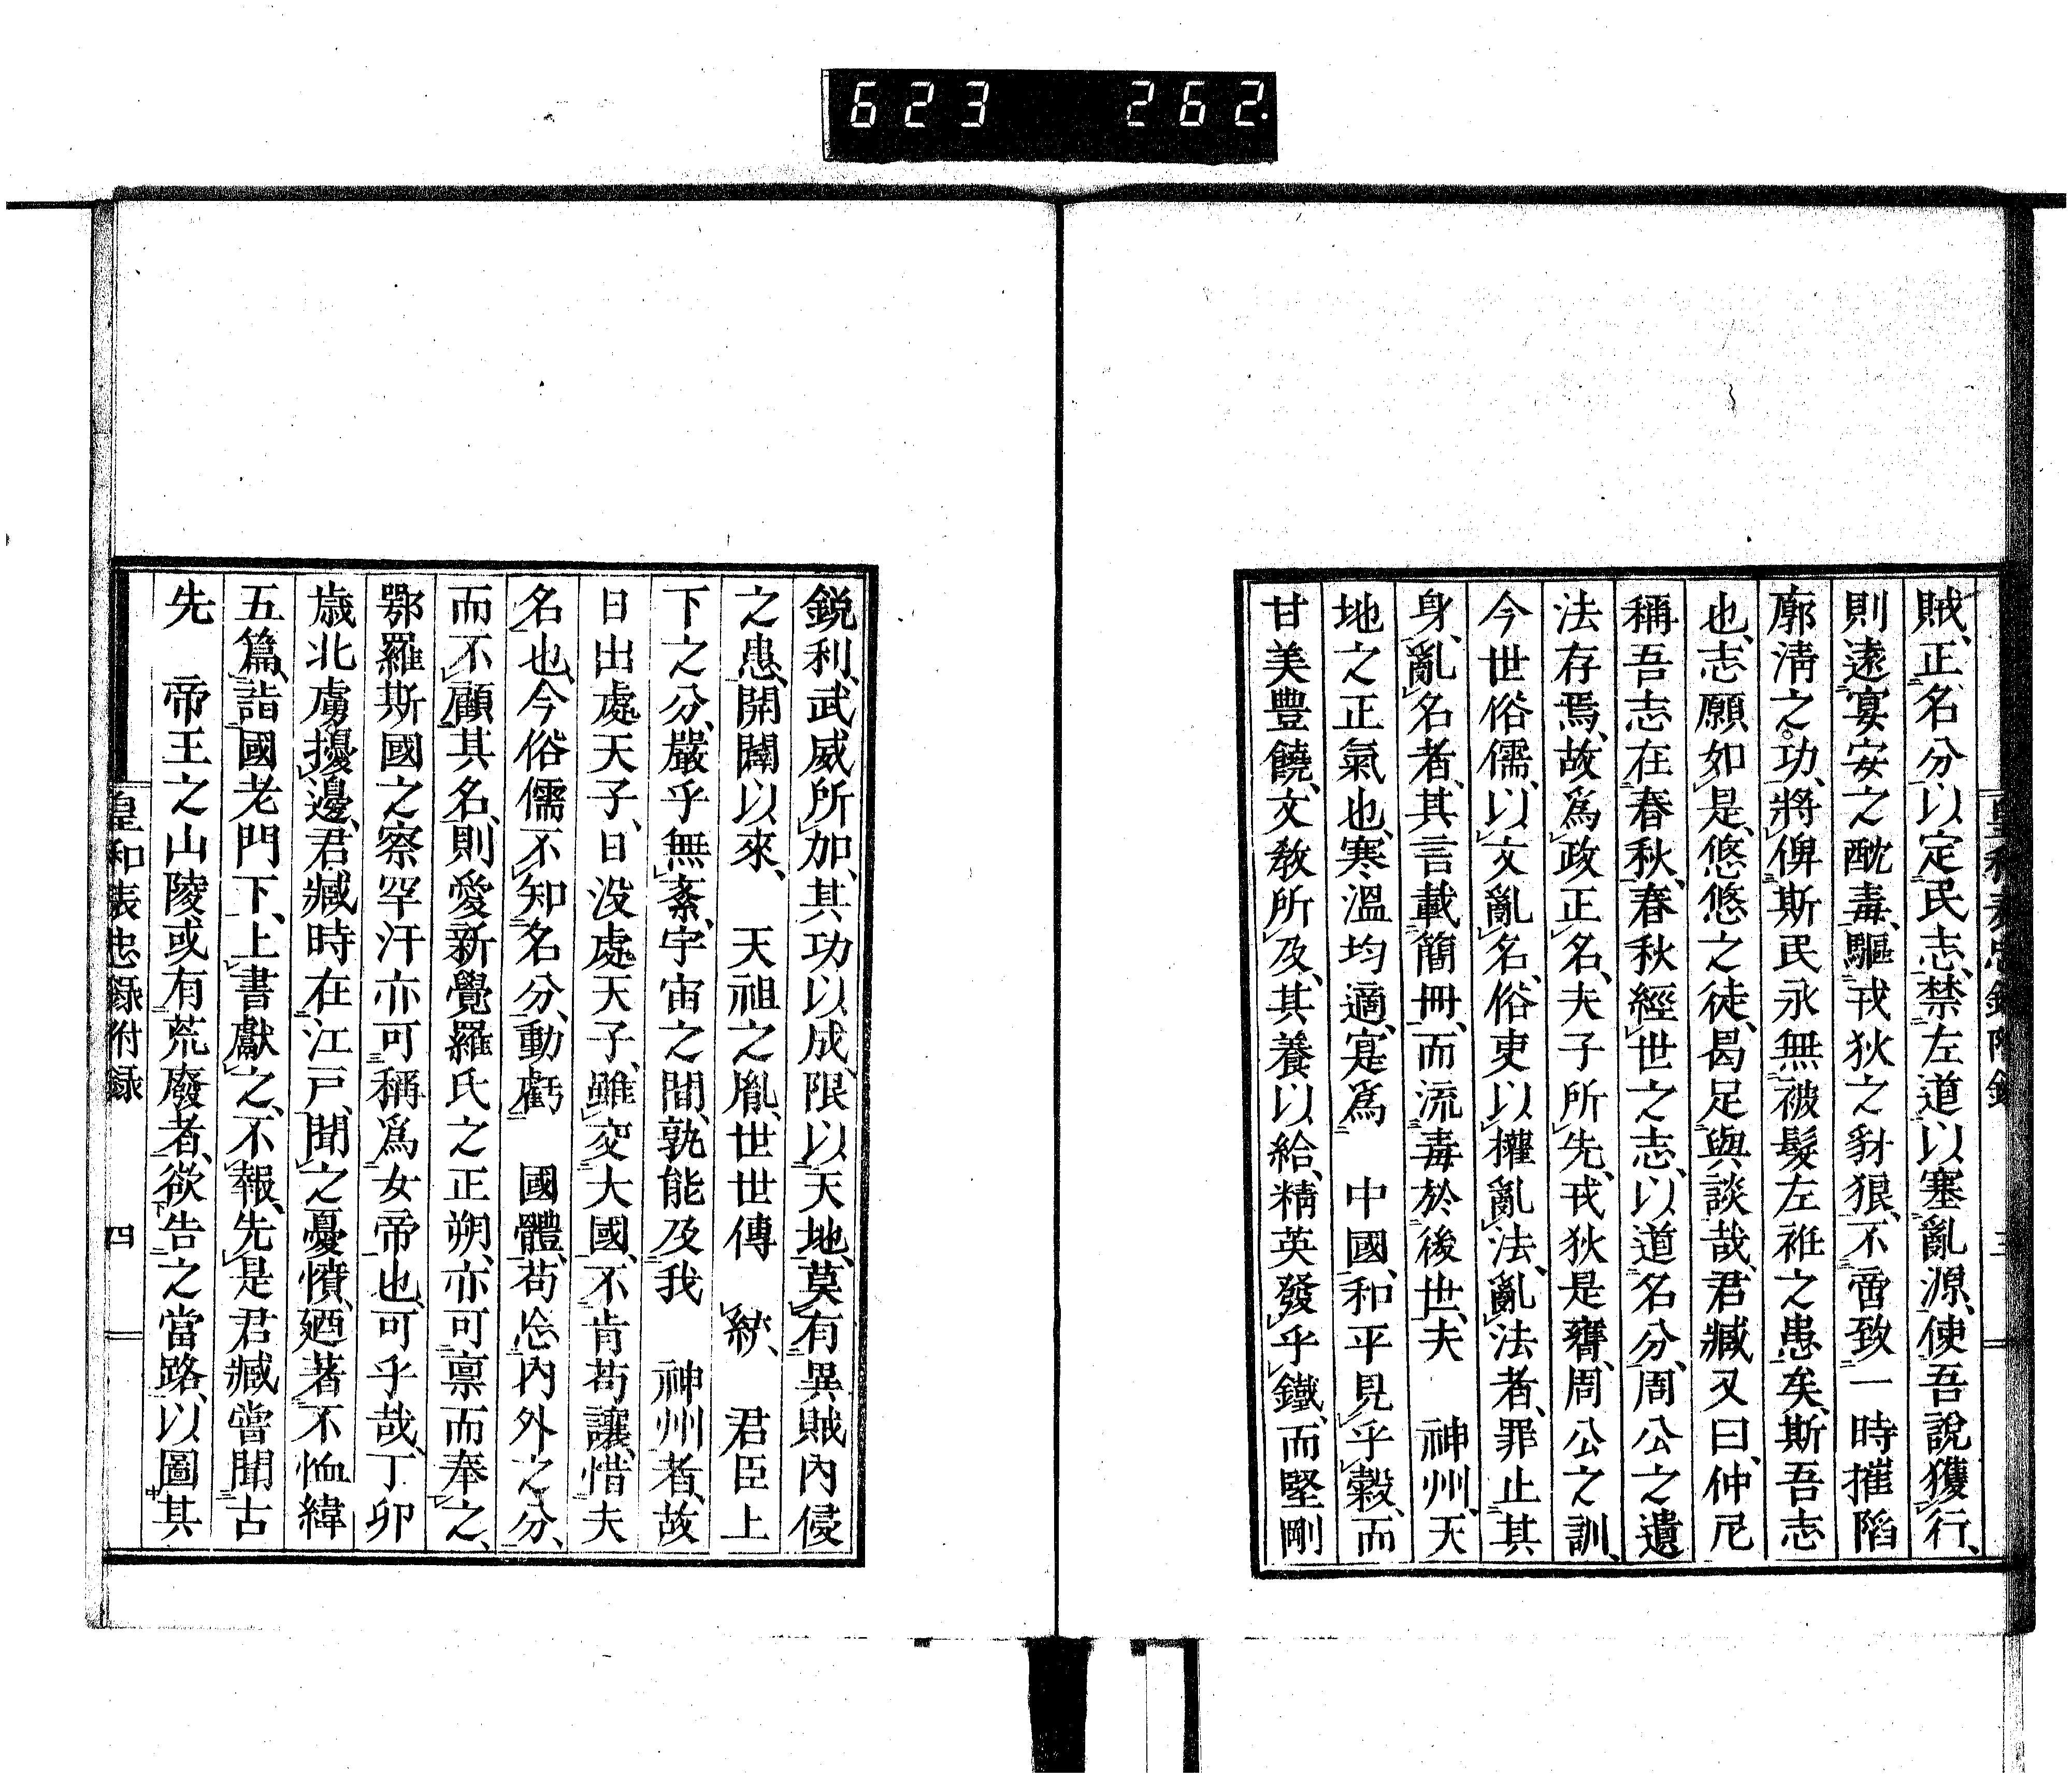 623 262.
皇和表忠錄附錄 三
賊、正名分以定民志、禁左道以塞亂源、使吾說獲行、
則遠宴安之酖毒、驅戎狄之豺狼、不啻致一時摧陷
廓淸之功、將俾斯民永無被髮左衽之患矣、斯吾志
也、志願如是、悠悠之徒、曷足與談哉、君臧又曰、仲尼
稱吾志在春秋、春秋經世之志、以道名分、周公之遺
法存焉、故爲政正名、夫子所先、戎狄是膺、周公之訓、
今世俗儒、以文亂名、俗吏以權亂法、亂法者、罪止其
身、亂名者、其言載簡冊、而流毒於後世、夫 神州、天
地之正氣也、寒溫均適、寔爲 中國、和平見乎穀、而
甘美豐饒、文敎所及、其養以給、精英發乎鐵、而堅剛
鋭利、武威所加、其功以成、限以天地、莫有異賊內侵
之患、開闢以來、 天祖之胤、世世傳 紱、 君臣上
下之分、嚴乎無紊、宇宙之間、孰能及我 神州者、故
日出處天子、日沒處天子、雖交大國、不肯苟讓、惜夫
名也、今俗儒不知名分、動虧 國體、苟忩內外之分、
而不顧其名、則愛新覺羅氏之正朔、亦可禀而奉之、
鄂羅斯國之察罕汗亦可稱爲女帝也、可乎哉、丁卯
歲北虜擾邊、君臧時在江戸、聞之憂憤、廼著不恤緯
五篇、詣國老門下、上書獻之、不報、先是君臧嘗聞古
先 帝王之山陵或有荒廢者、欲告之當路、以圖其
皇和表忠錄附錄 四